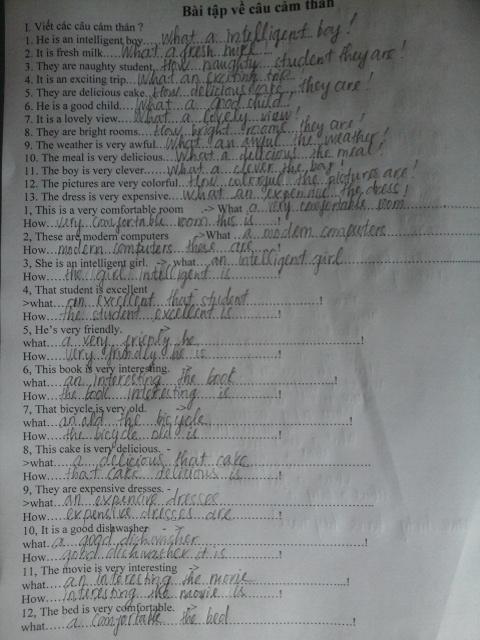 Bài tập về câu cảm thán
I. Viết các câu cảm thán ?
1. He is an intelligent boy....what a intelligent boy!
2. It is fresh milk....what a fresh milk
3. They are naughty student. How naughty student they are!
4. It is an exciting trip...what an exciting trip!
5. They are delicious cake. How delicious cake, they are!
6. He is a good child....what a good child
7. It is a lovely view....what a lovely view!
8. They are bright rooms...How bright rooms they are!
9. The weather is very awful..what an awful the weather!
10. The meal is very delicious...what a delicious the meal!
11. The boy is very clever....what a clever the boy!
12. The pictures are very colorful...How colorful the pictures are!
13. The dress is very expensive....what an expensive the dress!
1, This is a very comfortable room -> What a very comfortable room
How....very comfortable room this is......!
2, These are modern computers ->What...a modern computers
How...modern computers these are......!
3, She is an intelligent girl. -> what....an intelligent girl
How....the girl intelligent is......!
4, That student is excellent
>what....an excellent that student......!
How....the student excellent is......!
5, He's very friendly. ->
what....a very friendly he......!
How....very friendly he is......!
6, This book is very interesting. ->
what....an interesting the book......!
How....the book interesting is......!
7, That bicycle is very old. ->
what....an old the bicycle......!
How....the bicycle old is......!
8, This cake is very delicious. -
>what....a delicious that cake......
How....that cake delicious is......!
9, They are expensive dresses. -
>what....an expensive dresses
How....expensive dresses are......!
10, It is a good dishwasher ->
what...a good dishwasher......!
How....good dishwasher it is......!
11, The movie is very interesting
what....an interesting the movie......!
How....interesting the movie is......!
12, The bed is very comfortable. ->
what....a comfortable the bed......!